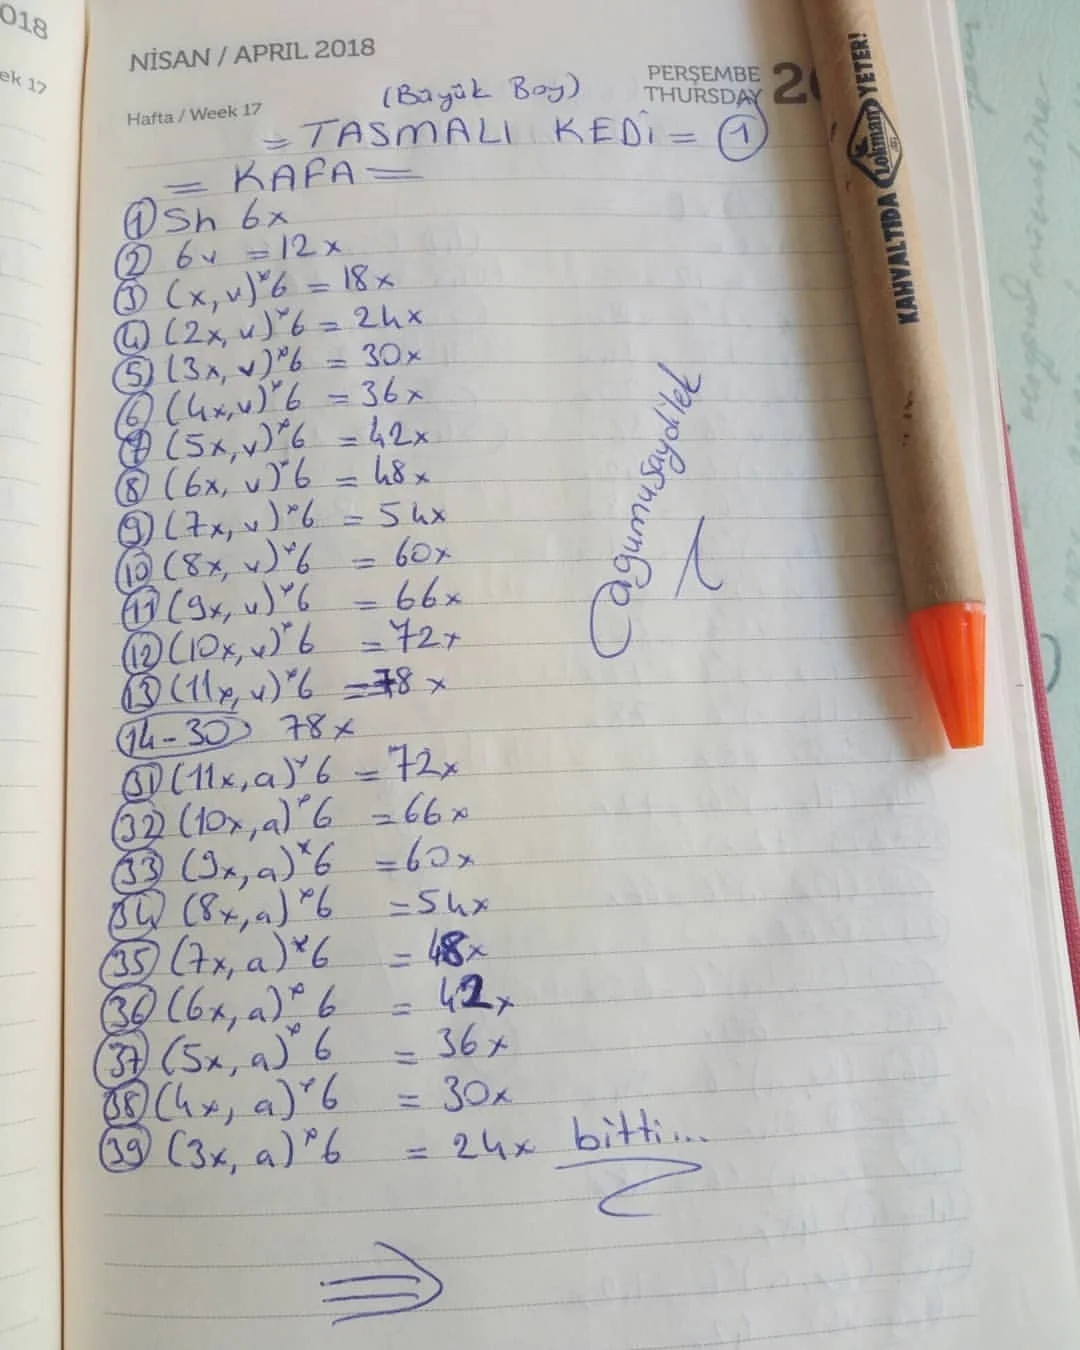 018
ek 17
NİSAN / APRIL 2018
Hafta / Week 17
PERŞEMBE
THURSDAY
2
(Büyük Boy)
= TASMALI KEDİ = ①
= KAFA =
① Sh 6x
② 6v = 12x
③ (x, v)*6 = 18x
④ (2x, v)*6 = 24x
⑤ (3x, v)*6 = 30x
⑥ (4x, v)*6 = 36x
⑦ (5x, v)*6 = 42x
⑧ (6x, v)*6 = 48x
⑨ (7x, v)*6 = 54x
⑩ (8x, v)*6 = 60x
⑪ (9x, v)*6 = 66x
⑫ (10x, v)*6 = 72x
⑬ (11x, v)*6 = 78x
14-30 78x
㉛ (11x, a)*6 = 72x
㉜ (10x, a)*6 = 66x
㉝ (9x, a)*6 = 60x
㉞ (8x, a)*6 = 54x
㉟ (7x, a)*6 = 48x
㊱ (6x, a)*6 = 42x
㊲ (5x, a)*6 = 36x
㊳ (4x, a)*6 = 30x
㊴ (3x, a)*6 = 24x bitti...
Cagumusaydilek
1
KAHVALTIDA Lokman YETER!